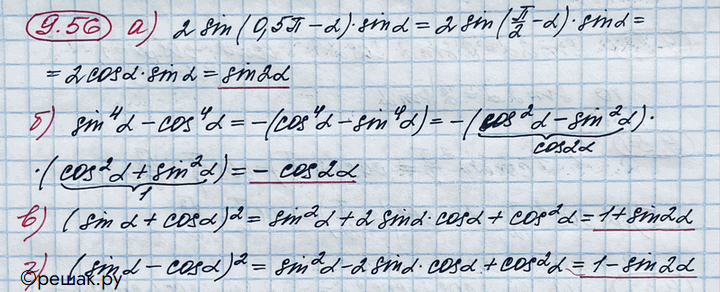 9.56 а) 2 sin(0,5π − α)·sinα = 2 sin(π/2 − α)·sinα =
= 2 cosα·sinα = sin2α
б) sin⁴α − cos⁴α = −(cos⁴α − sin⁴α) = −(cos²α − sin²α)·
cos2α
·(cos²α + sin²α) = − cos2α
1
в) (sinα + cosα)² = sin²α + 2 sinα·cosα + cos²α = 1 + sin2α
г) (sinα − cosα)² = sin²α − 2 sinα·cosα + cos²α = 1 − sin2α
©решак.ру